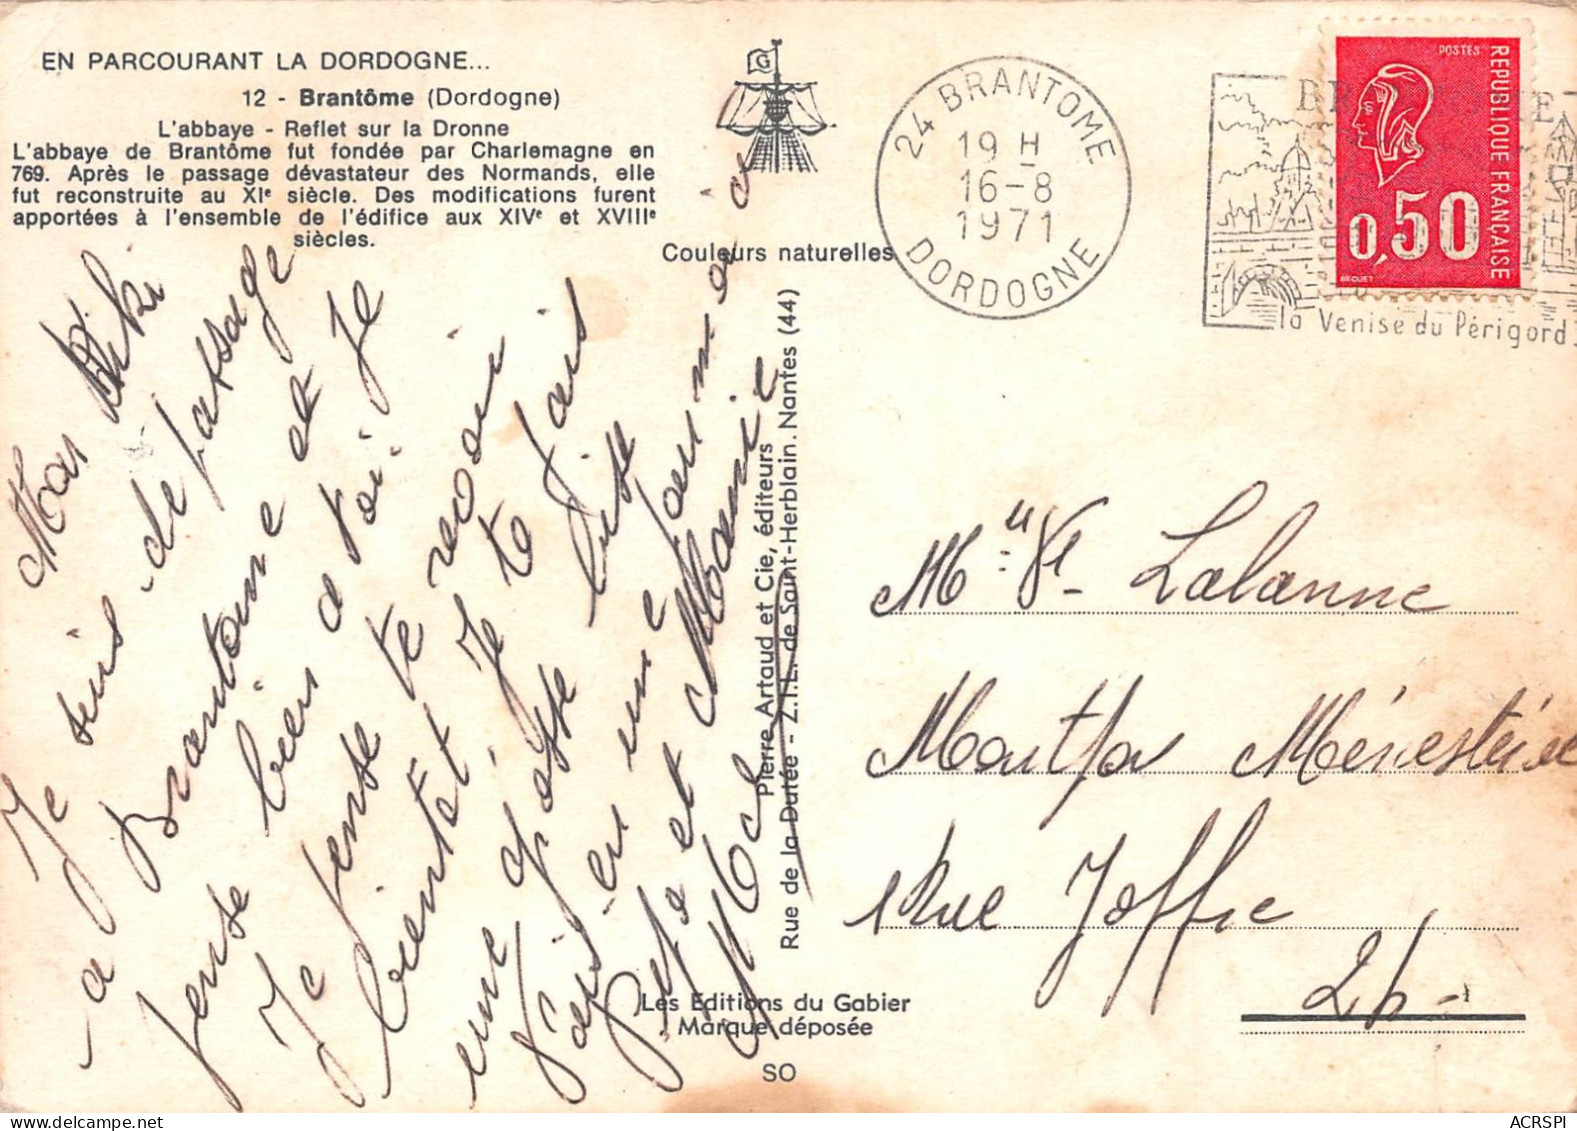 EN PARCOURANT LA DORDOGNE...
12 - Brantôme (Dordogne)
L'abbaye - Reflet sur la Dronne
L'abbaye de Brantôme fut fondée par Charlemagne en
769. Après le passage dévastateur des Normands, elle
fut reconstruite au XIe siècle. Des modifications furent
apportées à l'ensemble de l'édifice aux XIVe et XVIIIe
siècles.
G
Couleurs naturelles
Mon Kiki
Je suis de passage
a Brantome et Je
pense bien a toi.
Je pense te revoir
bientot Je te fais
une grosse bise
en une
pepe et Mamie
Pierre Artaud et Cie, éditeurs
Rue de la Dutée - Z.I.L. de Saint-Herblain. Nantes (44)
Les Editions du Gabier
Marque déposée
SO
24 BRANTOME
19 H
16-8
1971
DORDOGNE
la Venise du Périgord
POSTES
REPUBLIQUE FRANÇAISE
0,50
BEQUET
Ve Lalanne
Ménestérol
1 Rue Joffre
24
ACRSPI